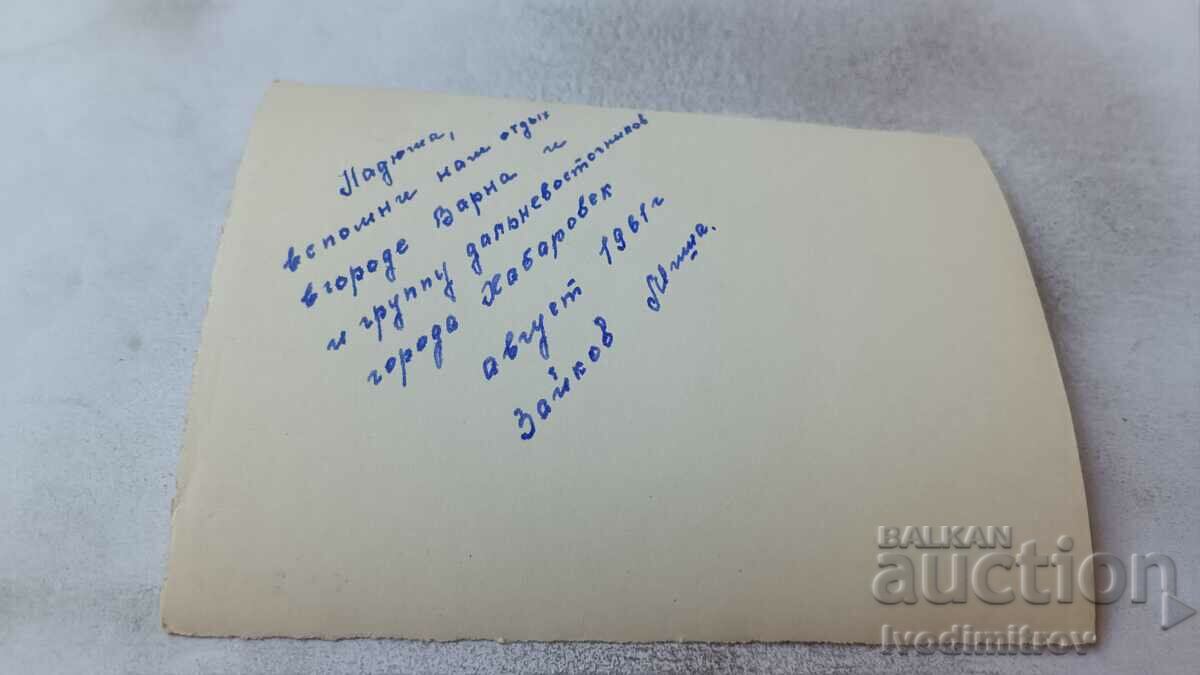 Надюша,
вспомни наш отдых
в городе Варна и
и группу дальневосточников
города Хабаровск
август 1961 г
Зайков Миша.
BALKAN
auction
Ivodimitrov